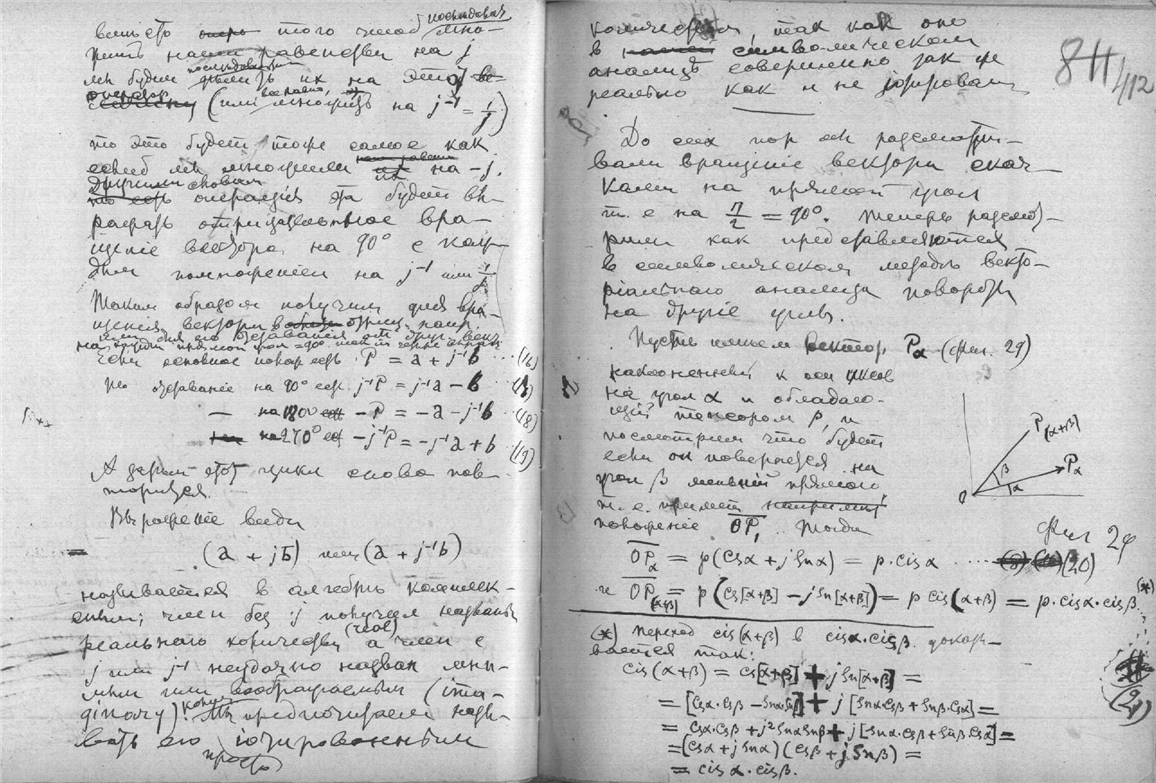 вместо того чтоб мно-
последоват
жить наши равенства на j
мы будем последовательно делить их на это j
(или множить на j⁻¹ = 1/j)
то это будет тоже самое как
еслиб мы множили на -j.
Другими словами
операция эта будет вы-
ражать отрицательное вра-
щенiе вектора на 90° с каж-
дым помноженiем на j⁻¹ или 1/j
Таким образом получим для вра-
щенiя вектора
основное P = a + j⁻¹b ... (16)
на 90° j⁻¹P = j⁻¹a - b
— на 180° - P = - a - j⁻¹b (18)
на 270° - j⁻¹P = - j⁻¹a + b (19)
А затем этот цикл снова пов-
торится.
Выраженiе вида
(a + jb) или (a + j⁻¹b)
называется в алгебре комплек-
сным; член без j получил названiе
реального количества (real) а член с
j или j⁻¹ неудачно назван мни-
мым или воображаемым (ima-
ginary). Мы предпочитаем назы-
вать его просто iотированным
количеством, так как оно
в символическом
анализе совершенно так же
реально как и не iотирован
84 1/412
До сих пор мы рассматри-
вали вращенiе вектора скач-
ками на прямой угол
т. е на π/2 = 90°. Теперь рассмот-
рим как представляются
в символическом методе векто-
рiального анализа повороты
на другiе углы.
Пусть имеем вектор Pα (фиг. 29)
наклоненный к оси иксов
на угол α и обладаю-
щiй тензором p, и
посмотрим что будет
если он повернется на
угол β меньшiй прямого
т. е. примет
положенiе OP₁. Тогда
P(α+β)
Pα
β
α
O
Фиг 29
OPα = p(csα + j snα) = p·cisα ..... (20)
и OP(α+β) = p(cs[α+β] - j sn[α+β]) = p cis(α+β) = p·cisα·cisβ (*)
(21)
(*) переход cis(α+β) в cisα·cisβ доказы-
вается так:
cis(α+β) = cs[α+β] + j sn[α+β] =
= [csα·csβ - snα·snβ] + j [snα·csβ + snβ·csα] =
= csα·csβ + j²snα snβ + j[snα·csβ + snβ·csα] =
= (csα + j snα)(csβ + j snβ) =
= cisα·cisβ.